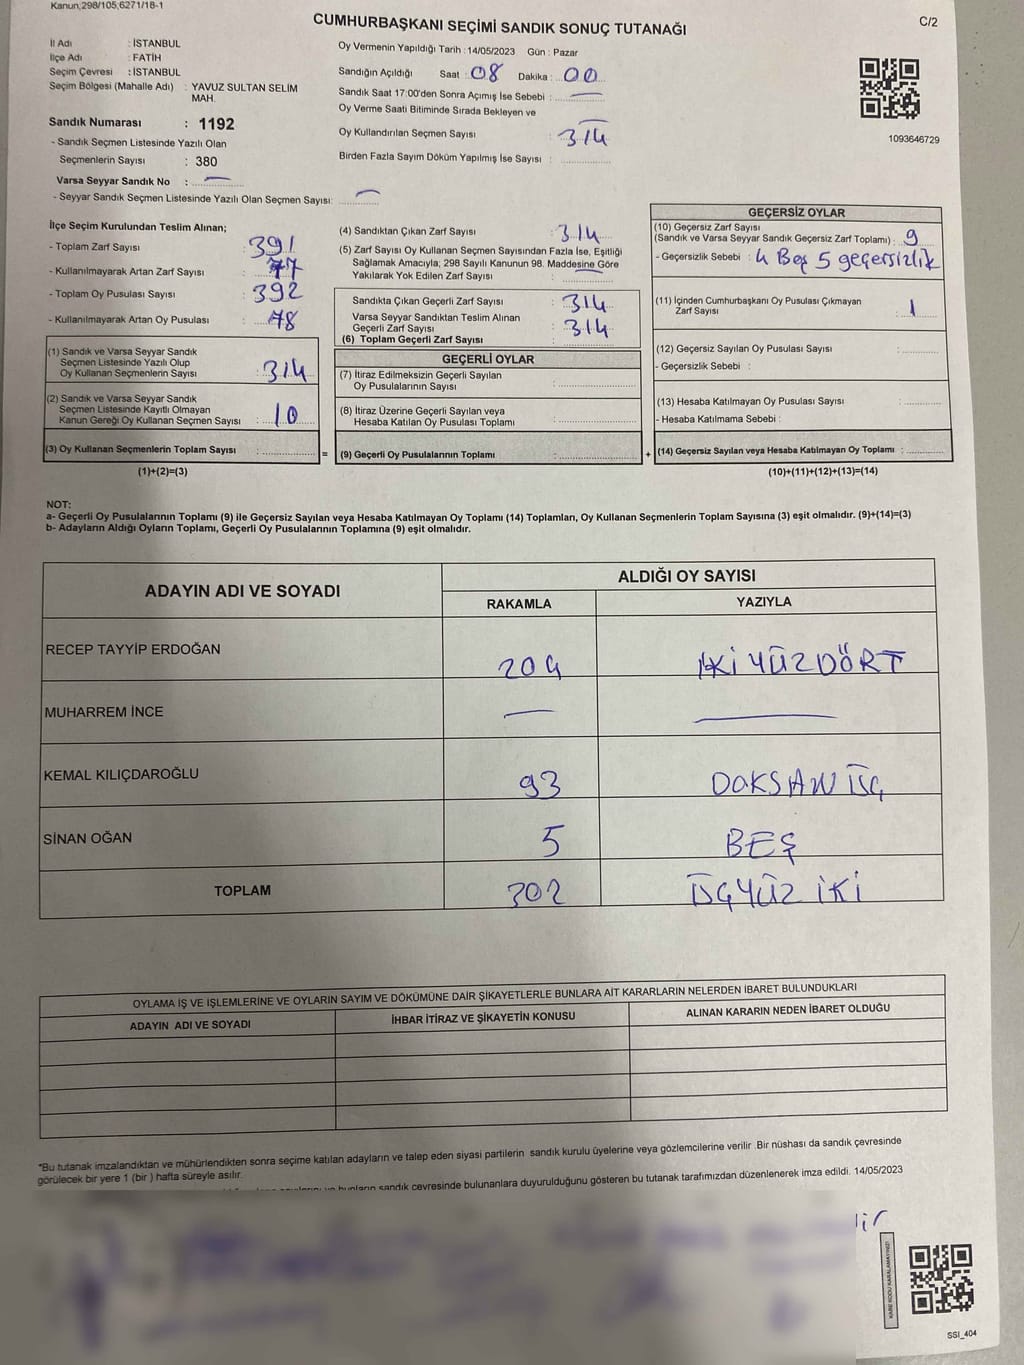 Kanun,298/105,6271/18-1
CUMHURBAŞKANI SEÇİMİ SANDIK SONUÇ TUTANAĞI
C/2
İl Adı : İSTANBUL
İlçe Adı : FATİH
Seçim Çevresi : İSTANBUL
Seçim Bölgesi (Mahalle Adı) : YAVUZ SULTAN SELİM
MAH.
Sandık Numarası : 1192
- Sandık Seçmen Listesinde Yazılı Olan
Seçmenlerin Sayısı : 380
Varsa Seyyar Sandık No : —
- Seyyar Sandık Seçmen Listesinde Yazılı Olan Seçmen Sayısı: —
Oy Vermenin Yapıldığı Tarih : 14/05/2023 Gün : Pazar
Sandığın Açıldığı Saat : 08 Dakika : 00
Sandık Saat 17:00'den Sonra Açımış İse Sebebi : —
Oy Verme Saati Bitiminde Sırada Bekleyen ve
Oy Kullandırılan Seçmen Sayısı : 314
Birden Fazla Sayım Döküm Yapılmış İse Sayısı :
1093646729
İlçe Seçim Kurulundan Teslim Alınan;
- Toplam Zarf Sayısı : 391
- Kullanılmayarak Artan Zarf Sayısı : 77
- Toplam Oy Pusulası Sayısı : 392
- Kullanılmayarak Artan Oy Pusulası : 78
(1) Sandık ve Varsa Seyyar Sandık
Seçmen Listesinde Yazılı Olup
Oy Kullanan Seçmenlerin Sayısı : 314
(2) Sandık ve Varsa Seyyar Sandık
Seçmen Listesinde Kayıtlı Olmayan
Kanun Gereği Oy Kullanan Seçmen Sayısı : 10
(3) Oy Kullanan Seçmenlerin Toplam Sayısı :
(1)+(2)=(3)
(4) Sandıktan Çıkan Zarf Sayısı : 314
(5) Zarf Sayısı Oy Kullanan Seçmen Sayısından Fazla İse, Eşitliği
Sağlamak Amacıyla; 298 Sayılı Kanunun 98. Maddesine Göre
Yakılarak Yok Edilen Zarf Sayısı : —
Sandıkta Çıkan Geçerli Zarf Sayısı : 314
Varsa Seyyar Sandıktan Teslim Alınan
Geçerli Zarf Sayısı : 314
(6) Toplam Geçerli Zarf Sayısı :
GEÇERLİ OYLAR
(7) İtiraz Edilmeksizin Geçerli Sayılan
Oy Pusulalarının Sayısı :
(8) İtiraz Üzerine Geçerli Sayılan veya
Hesaba Katılan Oy Pusulası Toplamı :
= (9) Geçerli Oy Pusulalarının Toplamı :
GEÇERSİZ OYLAR
(10) Geçersiz Zarf Sayısı
(Sandık ve Varsa Seyyar Sandık Geçersiz Zarf Toplamı) : 9
- Geçersizlik Sebebi : 4 Boş 5 geçersizlik
(11) İçinden Cumhurbaşkanı Oy Pusulası Çıkmayan
Zarf Sayısı : 1
(12) Geçersiz Sayılan Oy Pusulası Sayısı :
- Geçersizlik Sebebi :
(13) Hesaba Katılmayan Oy Pusulası Sayısı :
- Hesaba Katılmama Sebebi :
+ (14) Geçersiz Sayılan veya Hesaba Katılmayan Oy Toplamı :
(10)+(11)+(12)+(13)=(14)
NOT:
a- Geçerli Oy Pusulalarının Toplamı (9) ile Geçersiz Sayılan veya Hesaba Katılmayan Oy Toplamı (14) Toplamları, Oy Kullanan Seçmenlerin Toplam Sayısına (3) eşit olmalıdır. (9)+(14)=(3)
b- Adayların Aldığı Oyların Toplamı, Geçerli Oy Pusulalarının Toplamına (9) eşit olmalıdır.
ADAYIN ADI VE SOYADI
ALDIĞI OY SAYISI
RAKAMLA YAZIYLA
RECEP TAYYİP ERDOĞAN 204 İKİ YÜZ DÖRT
MUHARREM İNCE — —
KEMAL KILIÇDAROĞLU 93 DOKSAN ÜÇ
SİNAN OĞAN 5 BEŞ
TOPLAM 302 ÜÇYÜZ İKİ
OYLAMA İŞ VE İŞLEMLERİNE VE OYLARIN SAYIM VE DÖKÜMÜNE DAİR ŞİKAYETLERLE BUNLARA AİT KARARLARIN NELERDEN İBARET BULUNDUKLARI
ADAYIN ADI VE SOYADI İHBAR İTİRAZ VE ŞİKAYETİN KONUSU ALINAN KARARIN NEDEN İBARET OLDUĞU
*Bu tutanak imzalandıktan ve mühürlendikten sonra seçime katılan adayların ve talep eden siyasi partilerin sandık kurulu üyelerine veya gözlemcilerine verilir .Bir nüshası da sandık çevresinde
görülecek bir yere 1 (bir ) hafta süreyle asılır.
bunların sandık çevresinde bulunanlara duyurulduğunu gösteren bu tutanak tarafımızdan düzenlenerek imza edildi. 14/05/2023
SSI_404